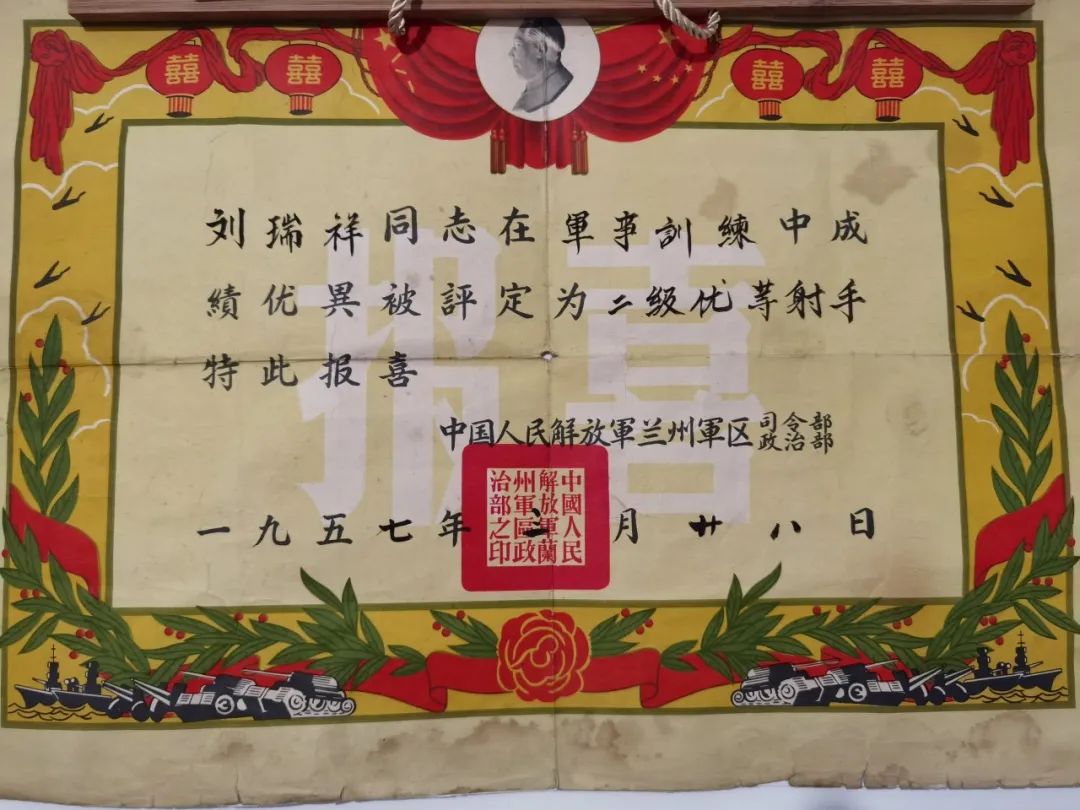 囍 囍 囍 囍
报喜
刘瑞祥同志在軍事訓練中成
績优異被評定为二级优等射手
特此报喜
中国人民解放軍兰州軍区司令部
政治部
一九五七年 月廿八日
中國人民
解放軍蘭
州軍區政
治部之印